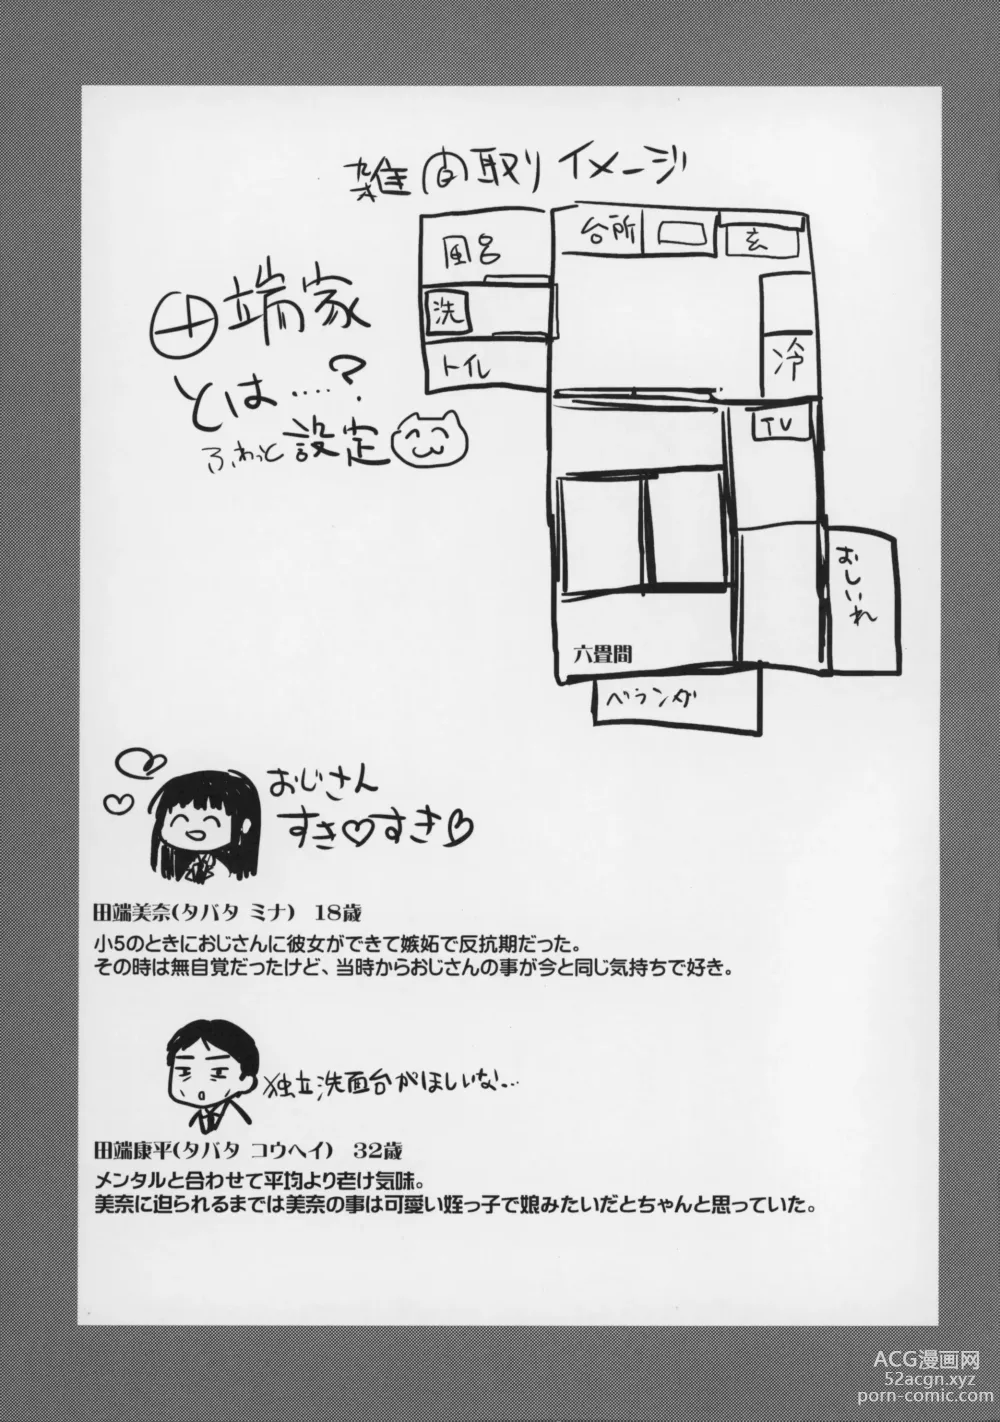 雑間取りイメージ
田端家
とは……?
ふわっと設定
風呂
洗
トイレ
台所
玄
冷
TV
おしいれ
六畳間
ベランダ
おじさん
すき♡すき♡
田端美奈(タバタ ミナ) 18歳
小5のときにおじさんに彼女ができて嫉妬で反抗期だった。
その時は無自覚だったけど、当時からおじさんの事が今と同じ気持ちで好き。
独立洗面台がほしいな…
田端康平(タバタ コウヘイ) 32歳
メンタルと合わせて平均より老け気味。
美奈に迫られるまでは美奈の事は可愛い姪っ子で娘みたいだとちゃんと思っていた。
ACG漫画网
52acgn.xyz
porn-comic.com